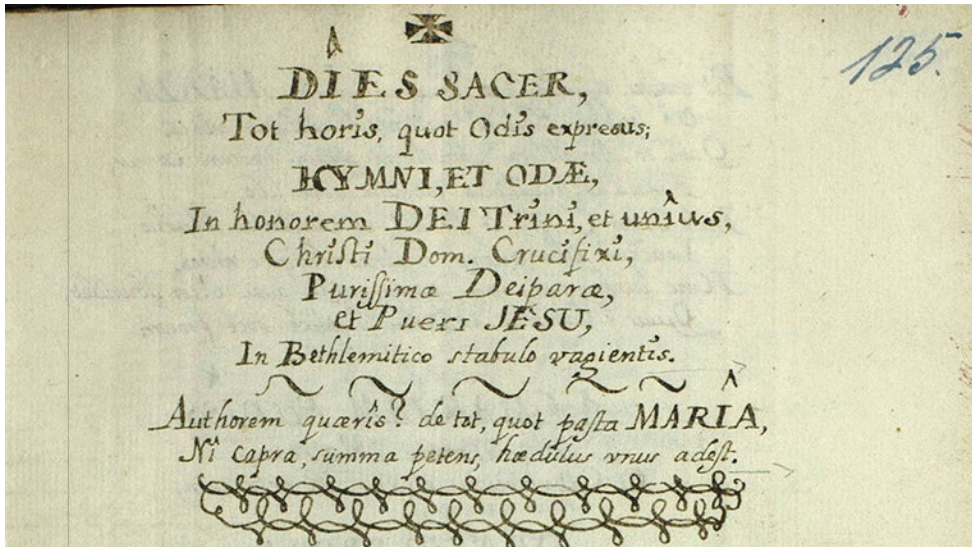 125.
DIES SACER,
Tot horis, quot Odis expresus;
HYMNI, ET ODÆ,
In honorem DEI Trini, et unius,
Christi Dom. Crucifixi,
Purissimæ Deiparæ,
et Pueri JESU,
In Bethlemitico stabulo vagientis.
Authorem quæris? de tot, quot pasta MARIA,
Ni capra, summa petens, hœdulus vnus adest.